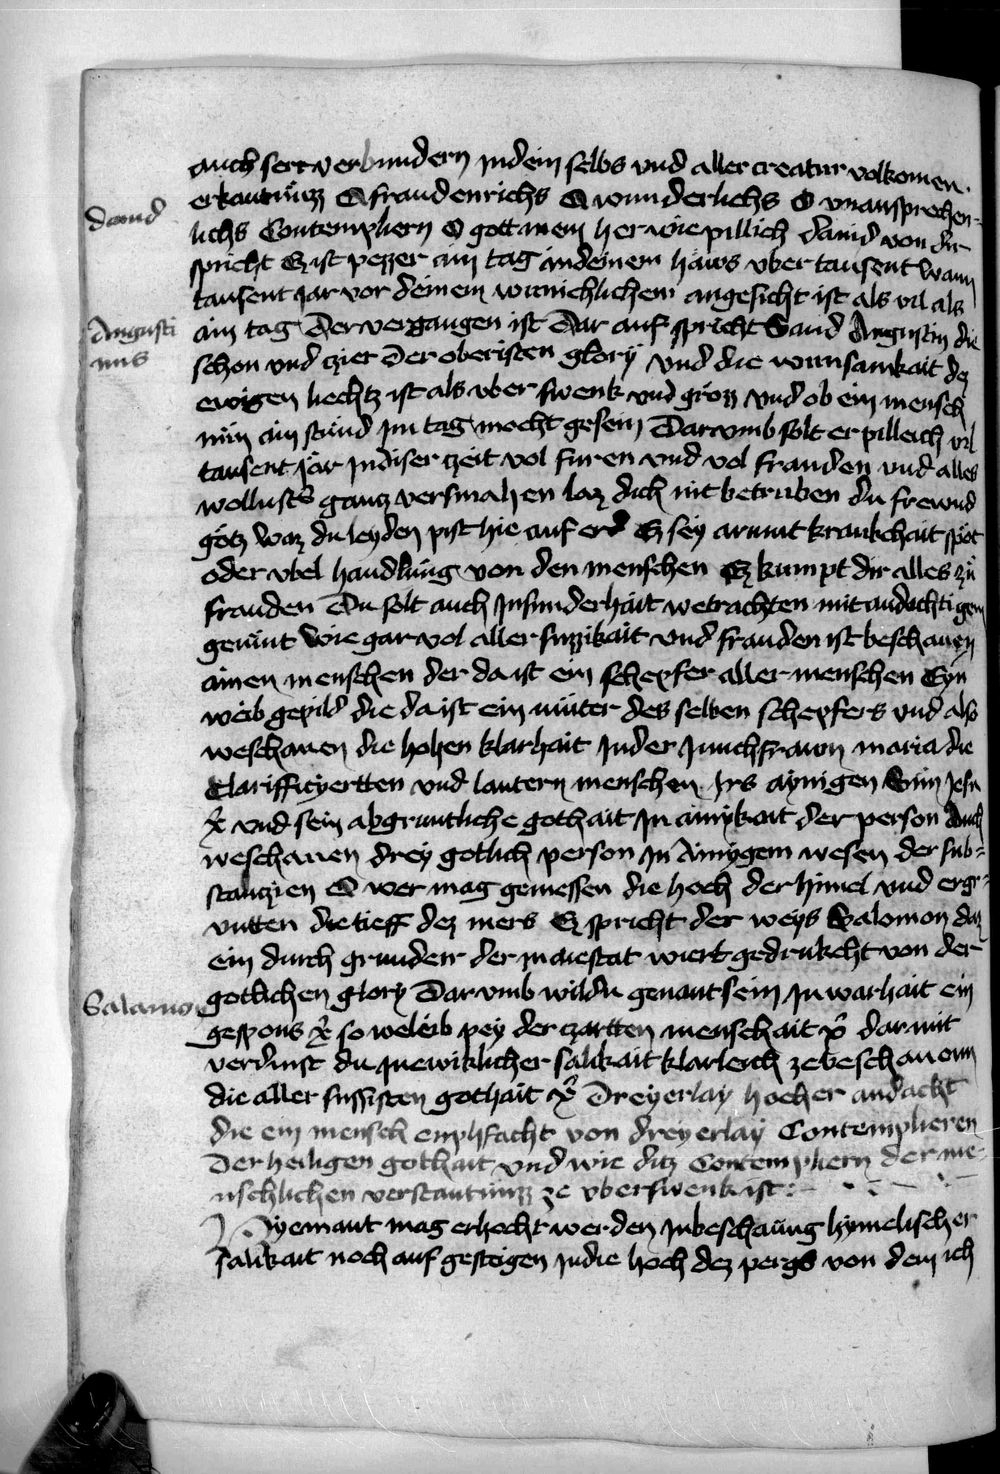 auch serr verbundern in dem selbs vnd aller creatur volkomen
erkantnüzz O fraudenrichs O wunderlichs O vnaussprechen-
dauid
lichs Contempliern O gott mein her wie pillich dauid von dir
spricht Ez ist pezzer ain tag in deinem haws vber tausent wann
tausent jar vor deinem wunichlichem angesicht ist als vil als
Augusti
nus
ain tag der vergangen ist Dar auf spricht Sand Augustin die
schon vnd czier der oberisten glory vnd die wunsamkait dez
ewigen liechtz ist als vber swenk vnd grözz vnd ob ein mensch
nün ain stünd im tag mocht gesein Darvmb solt er pilleich vil
tausent jar in diser czeit vol furen vnd vol frauden vnd alles
wollusts gancz versmahen laz dich nit betruben du frewnd
götz waz du leyden pist hie auf erd Ez sey armut krankchait spöt
oder vbel handlung von den menschen Ez kumpt dir alles zü
frauden Du solt auch in sunderhait wetrachten mit andechtigem
gemüt wie gar vol aller suzzikait vnd frauden ist beschauen
ainen menschen der da ist ein schepfer aller menschen Eyn
weib gepild die da ist ein müter des selben schepfers vnd also
weschauen die hohen klarhait in der Junchfrawn maria die
clarifficyertten vnd lautern menschen irs aynigen Sun Jesu
xp̄ vnd sein abgruntliche gothait in ainykait der person Auch
weschauen drey gotlich person in Ainygem wesen der sub=
stanczien O wer mag gemessen die hoch der himel vnd ergr=
vntten die tieff dez mers Ez spricht der weys Salomon daz
ein durch grunderr der maiestat wiert gedrukcht von der
Salamon
gotlichen glory Dar vmb wildu genant sein in warhait ein
gespons xp̄ so weleib pey der czartten menschait xp̄ dar mit
verdinst du in ewiklicher salikait klarleich ze beschauenn
die aller sussisten gothait xp̄ Dreyerlay hocher andacht
die ein mensch enphfacht von dreyerlay Contemplieren
der heiligen gothait vnd wie ditz Contempliern der me=
nschlichen verstantnüzz ze vberswenk ist :-
Nyemant mag erhocht werden in beschaüng hymelischer
salikait noch auf gestigen in die hoch dez pergs von dem ich